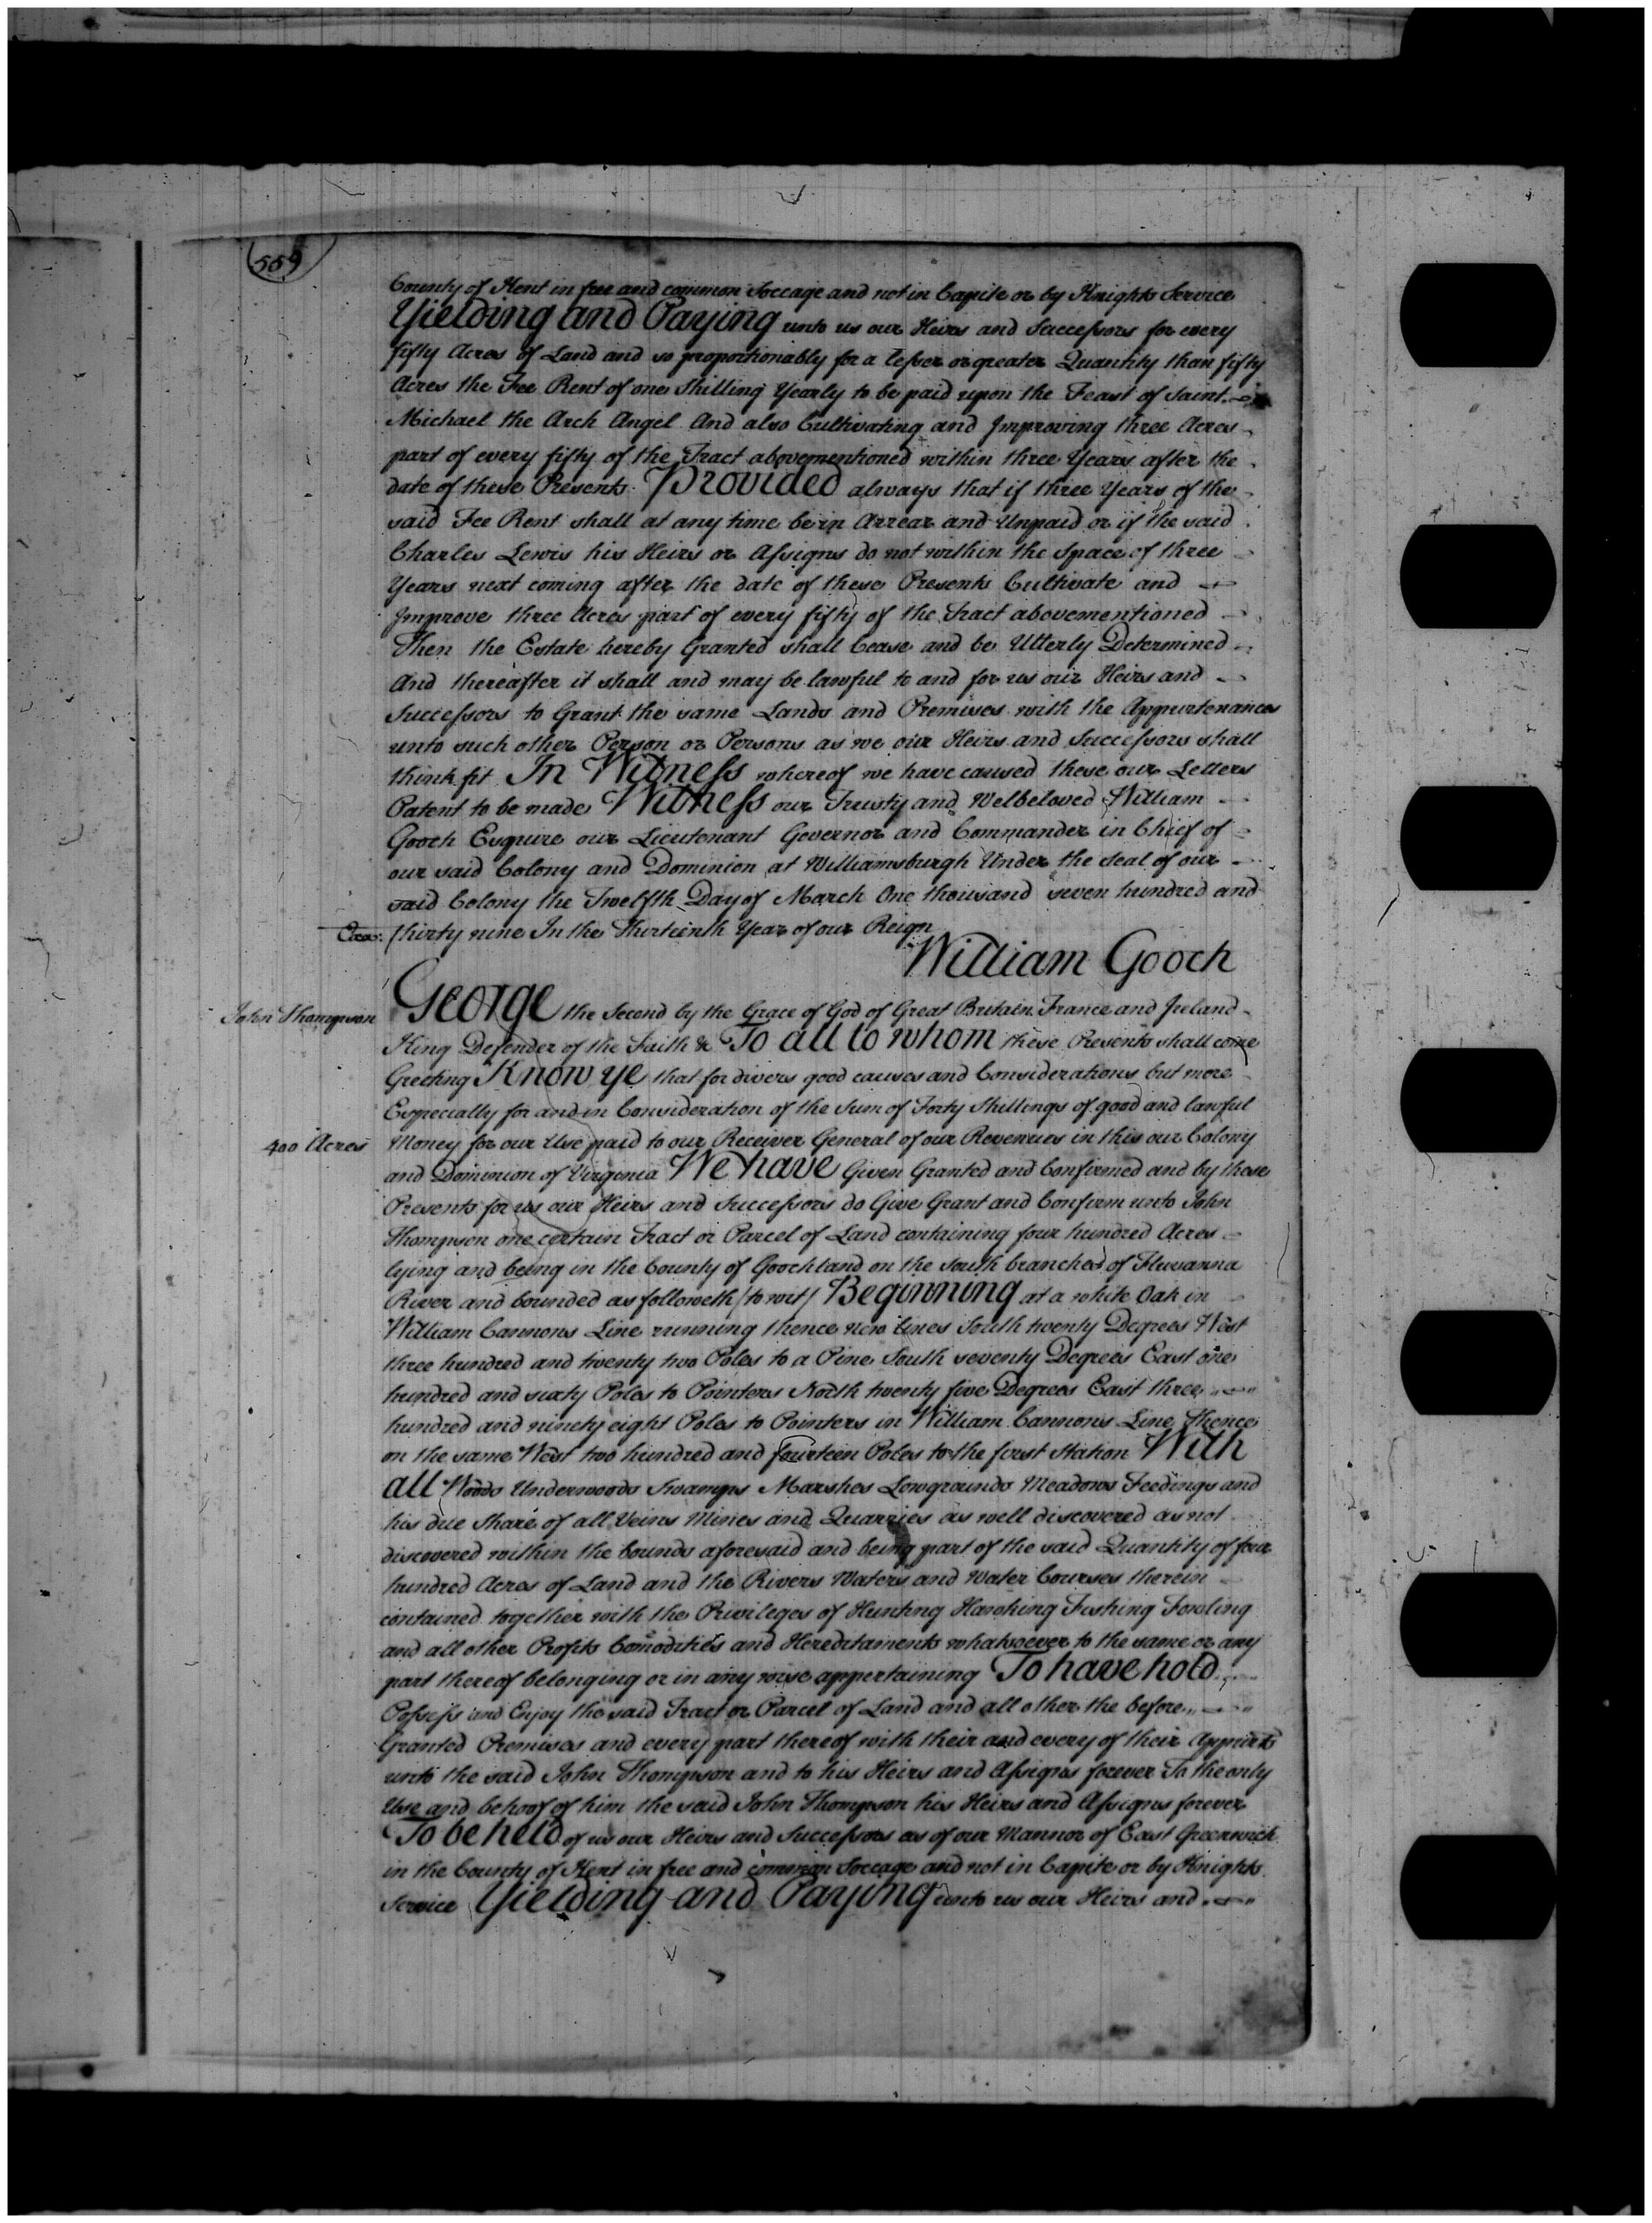 559
County of Kent in free and common Soccage and not in Capite or by Knights Service
Yielding and Paying unto us our Heirs and Successors for every
fifty Acres of Land and so proportionably for a lesser or greater Quantity than fifty
Acres the Fee Rent of one Shilling Yearly to be paid upon the Feast of Saint
Michael the Arch Angel And also Cultivating and Improving three Acres
part of every fifty of the Tract abovementioned within three Years after the
date of these Presents. Provided always that if three Years of the
said Fee Rent shall at any time be in Arrear and Unpaid or if the said
Charles Lewis his Heirs or Assigns do not within the Space of three
Years next coming after the date of these Presents Cultivate and
Improve three Acres part of every fifty of the Tract abovementioned
Then the Estate hereby Granted shall Cease and be Utterly Determined
And thereafter it shall and may be lawful to and for us our Heirs and
Successors to Grant the same Lands and Premises with the Appurtenances
unto such other Person or Persons as we our Heirs and Successors shall
think fit In Witness whereof we have caused these our Letters
Patent to be made Witness our Trusty and Welbeloved William
Gooch Esquire our Lieutenant Governor and Commander in Chief of
our said Colony and Dominion at Williamsburgh Under the Seal of our
said Colony the Twelfth Day of March One thousand seven hundred and
thirty nine In the Thirteenth Year of our Reign
William Gooch
John Thompson
George the Second by the Grace of God of Great Britain France and Ireland
King Defender of the Faith &c To all to whom these Presents shall come
Greeting Know ye that for divers good causes and Considerations but more
Especially for and in Consideration of the Sum of Forty Shillings of good and lawful
400 Acres
Money for our Use paid to our Receiver General of our Revenues in this our Colony
and Dominion of Virginia We have Given Granted and Confirmed and by these
Presents for us our Heirs and Successors do Give Grant and Confirm unto John
Thompson one certain Tract or Parcel of Land containing four hundred Acres
lying and being in the County of Goochland on the South branches of Fluvanna
River and bounded as followeth /to wit/ Beginning at a white Oak in
William Cannons Line running thence new lines South twenty Degrees West
three hundred and twenty two Poles to a Pine South seventy Degrees East one
hundred and sixty Poles to Pointers North twenty five Degrees East three
hundred and ninety eight Poles to Pointers in William Cannons Line Thence
on the same West two hundred and fourteen Poles to the first Station With
all Woods Underwoods Swamps Marshes Lowgrounds Meadows Feedings and
his due Share of all Veins Mines and Quarries as well discovered as not
discovered within the bounds aforesaid and being part of the said Quantity of four
hundred Acres of Land and the Rivers Waters and Water Courses therein
contained together with the Privileges of Hunting Hawking Fishing Fowling
and all other Profits Comodities and Hereditaments whatsoever to the same or any
part thereof belonging or in any wise appertaining To have hold
Possess and Enjoy the said Tract or Parcel of Land and all other the before
Granted Premises and every part thereof with their and every of their Appurts
unto the said John Thompson and to his Heirs and Assigns forever To the only
Use and behoof of him the said John Thompson his Heirs and Assigns forever
To be held of us our Heirs and Successors as of our Mannor of East Greenwich
in the County of Kent in free and common Soccage and not in Capite or by Knights
Service Yielding and Paying unto us our Heirs and